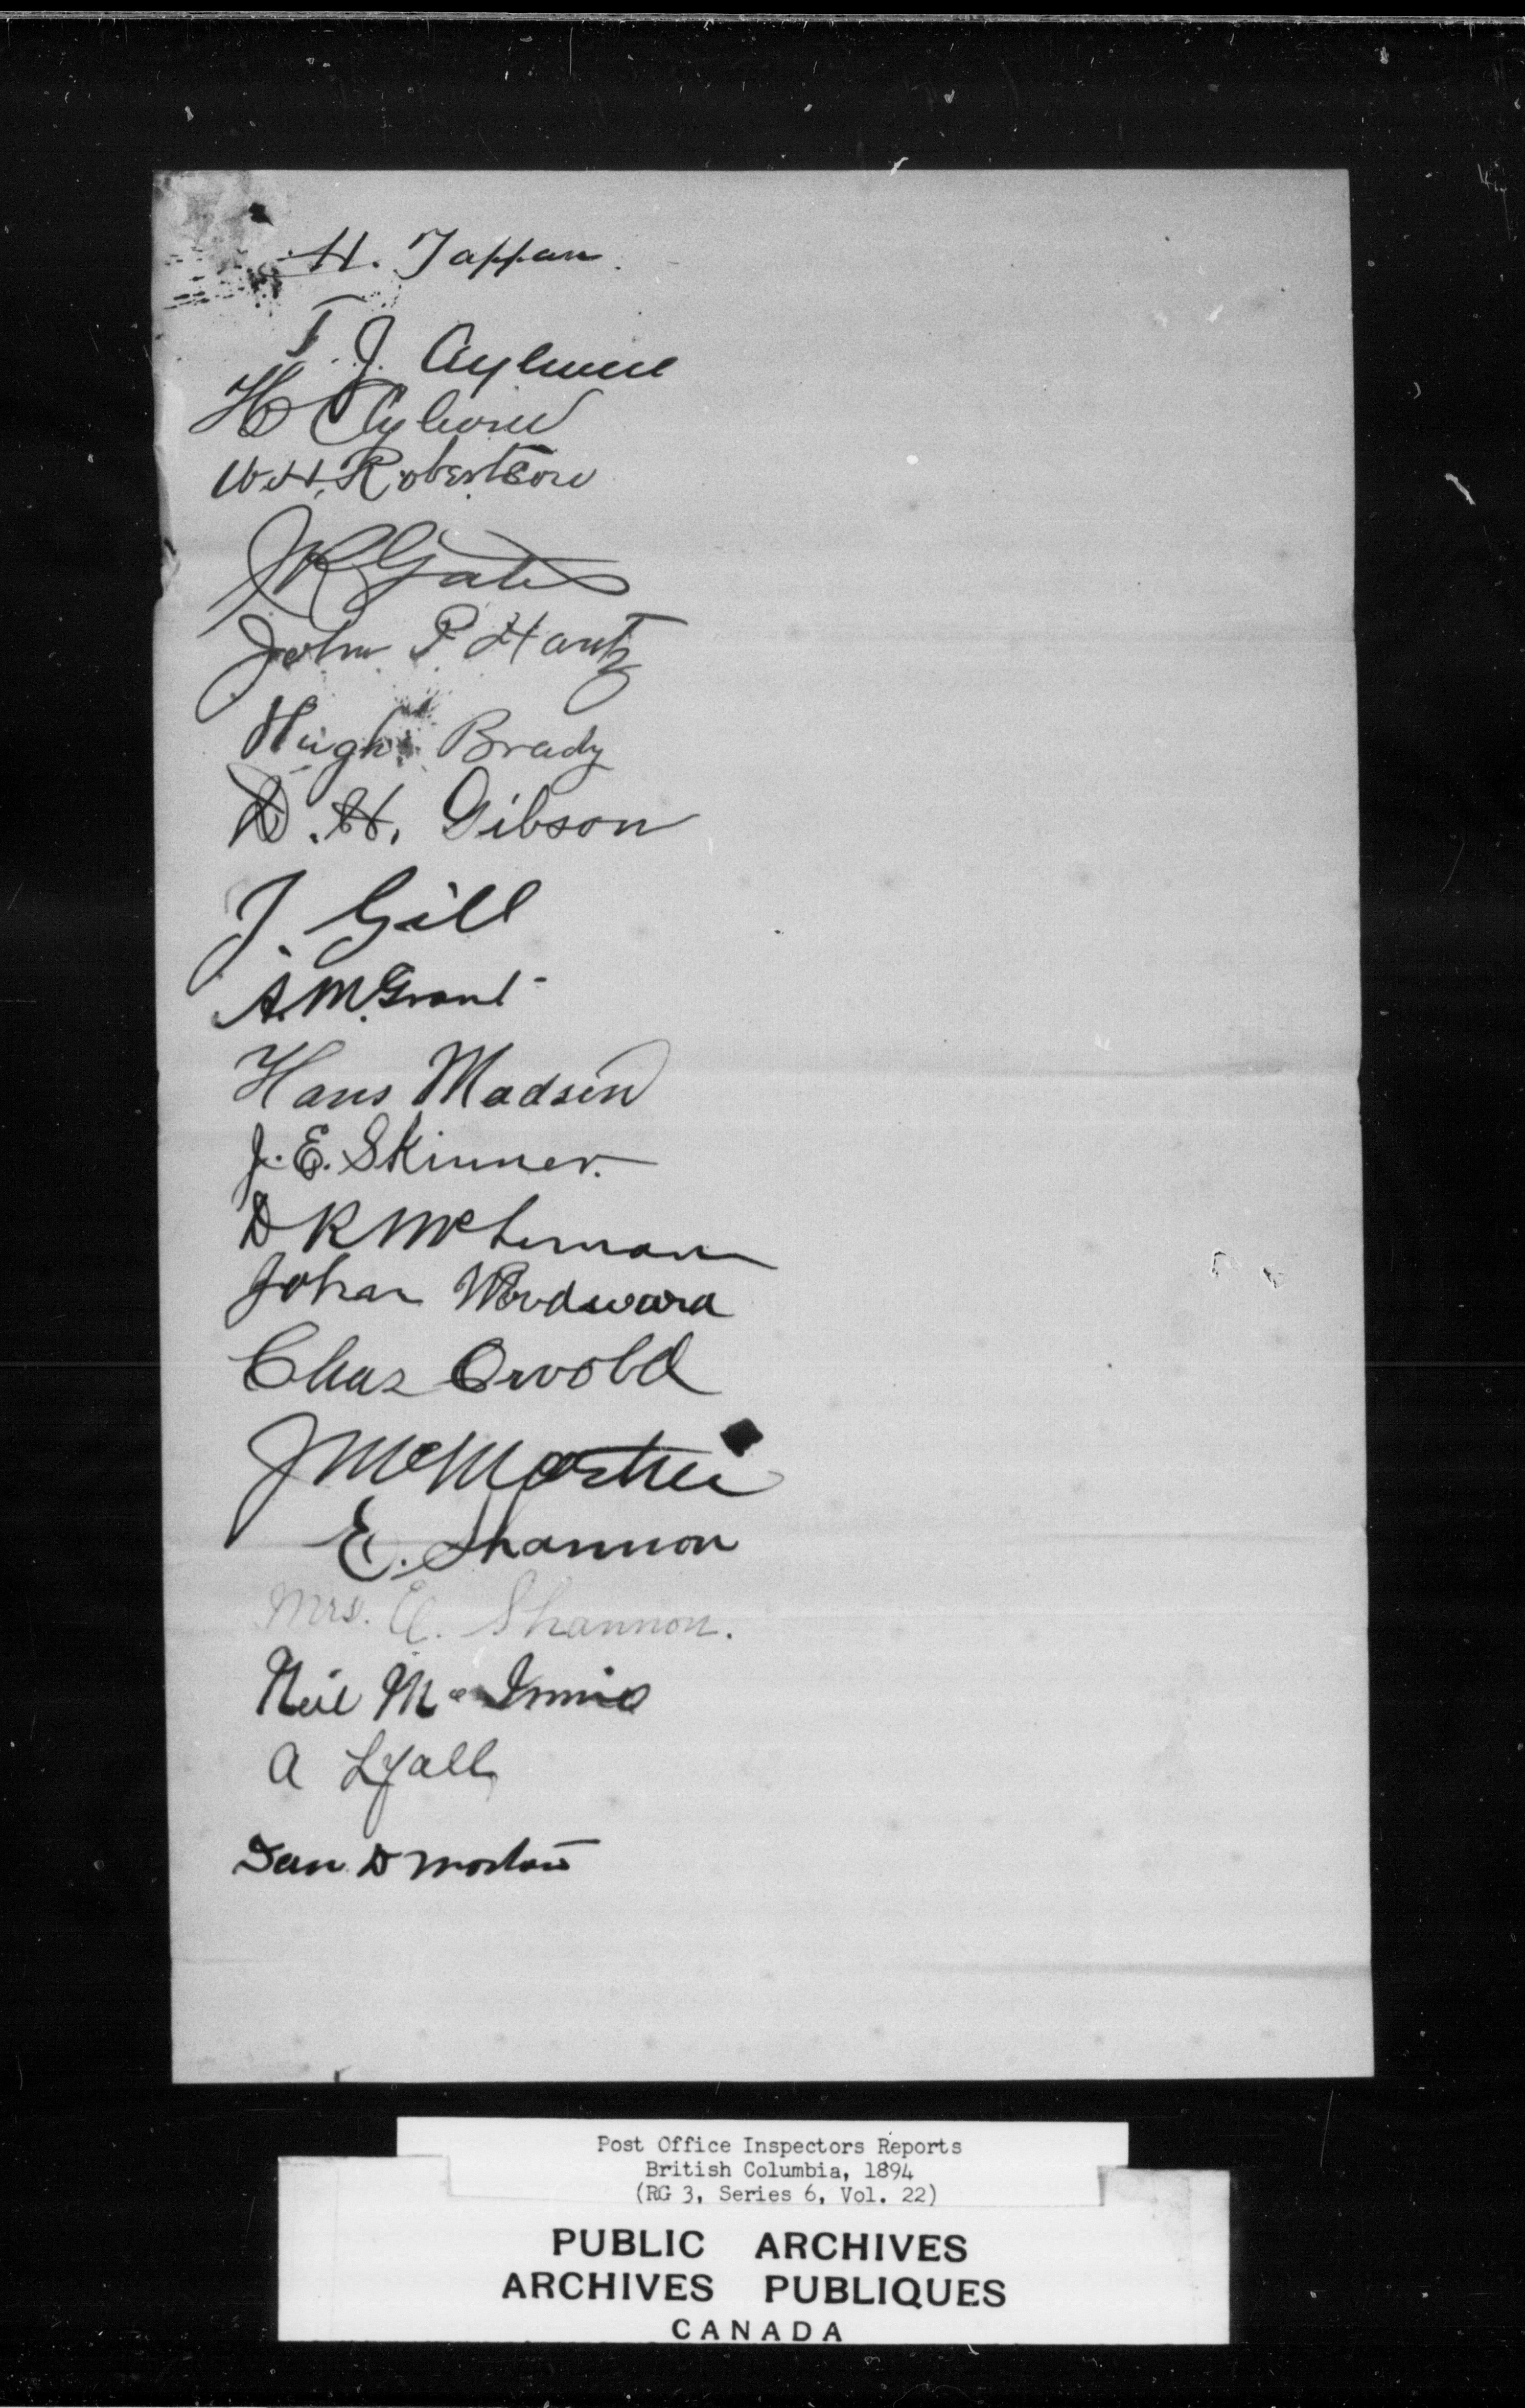 H. Tappan.
T. J. Aylwin
H Aylwin
W.H. Robertson
JR Gates
John P Hantz
Hugh Brady
D. H. Gibson
J. Gill
A. McGrant
Hans Madsen
J. E. Skinner.
D R McLennan
John Woodward
Chas Orvold
J McMartin
E. Shannon
Mrs. E. Shannon.
Neil McInnis
A Lyall
Dan D
Post Office Inspectors Reports
British Columbia, 1894
(RG 3, Series 6, Vol. 22)
PUBLIC ARCHIVES
ARCHIVES PUBLIQUES
CANADA